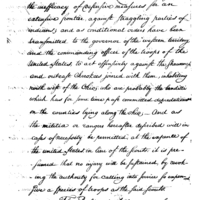 the inefficacy of defensive measures for an
extensive frontier against straggling parties of
and conditional orders have been
transmitted to the governor of the western territory
and the commanding officer of the troops of the
United States to act offensively against the Shawanese
and outcast Cherokees joined with them inhabiting
with most of the who are probably the banditti
which has for some time past committed depredations
on the countries lying along the Ohio, And as
the militia or rangers hereafter deputed will in
case of be permitted, at the expense of the
United States in lieu of the Scouts, it is pre-
sumed that no injury will be sustained, by revok-
ing the authority for calling into service
a species of troops as the said Scouts